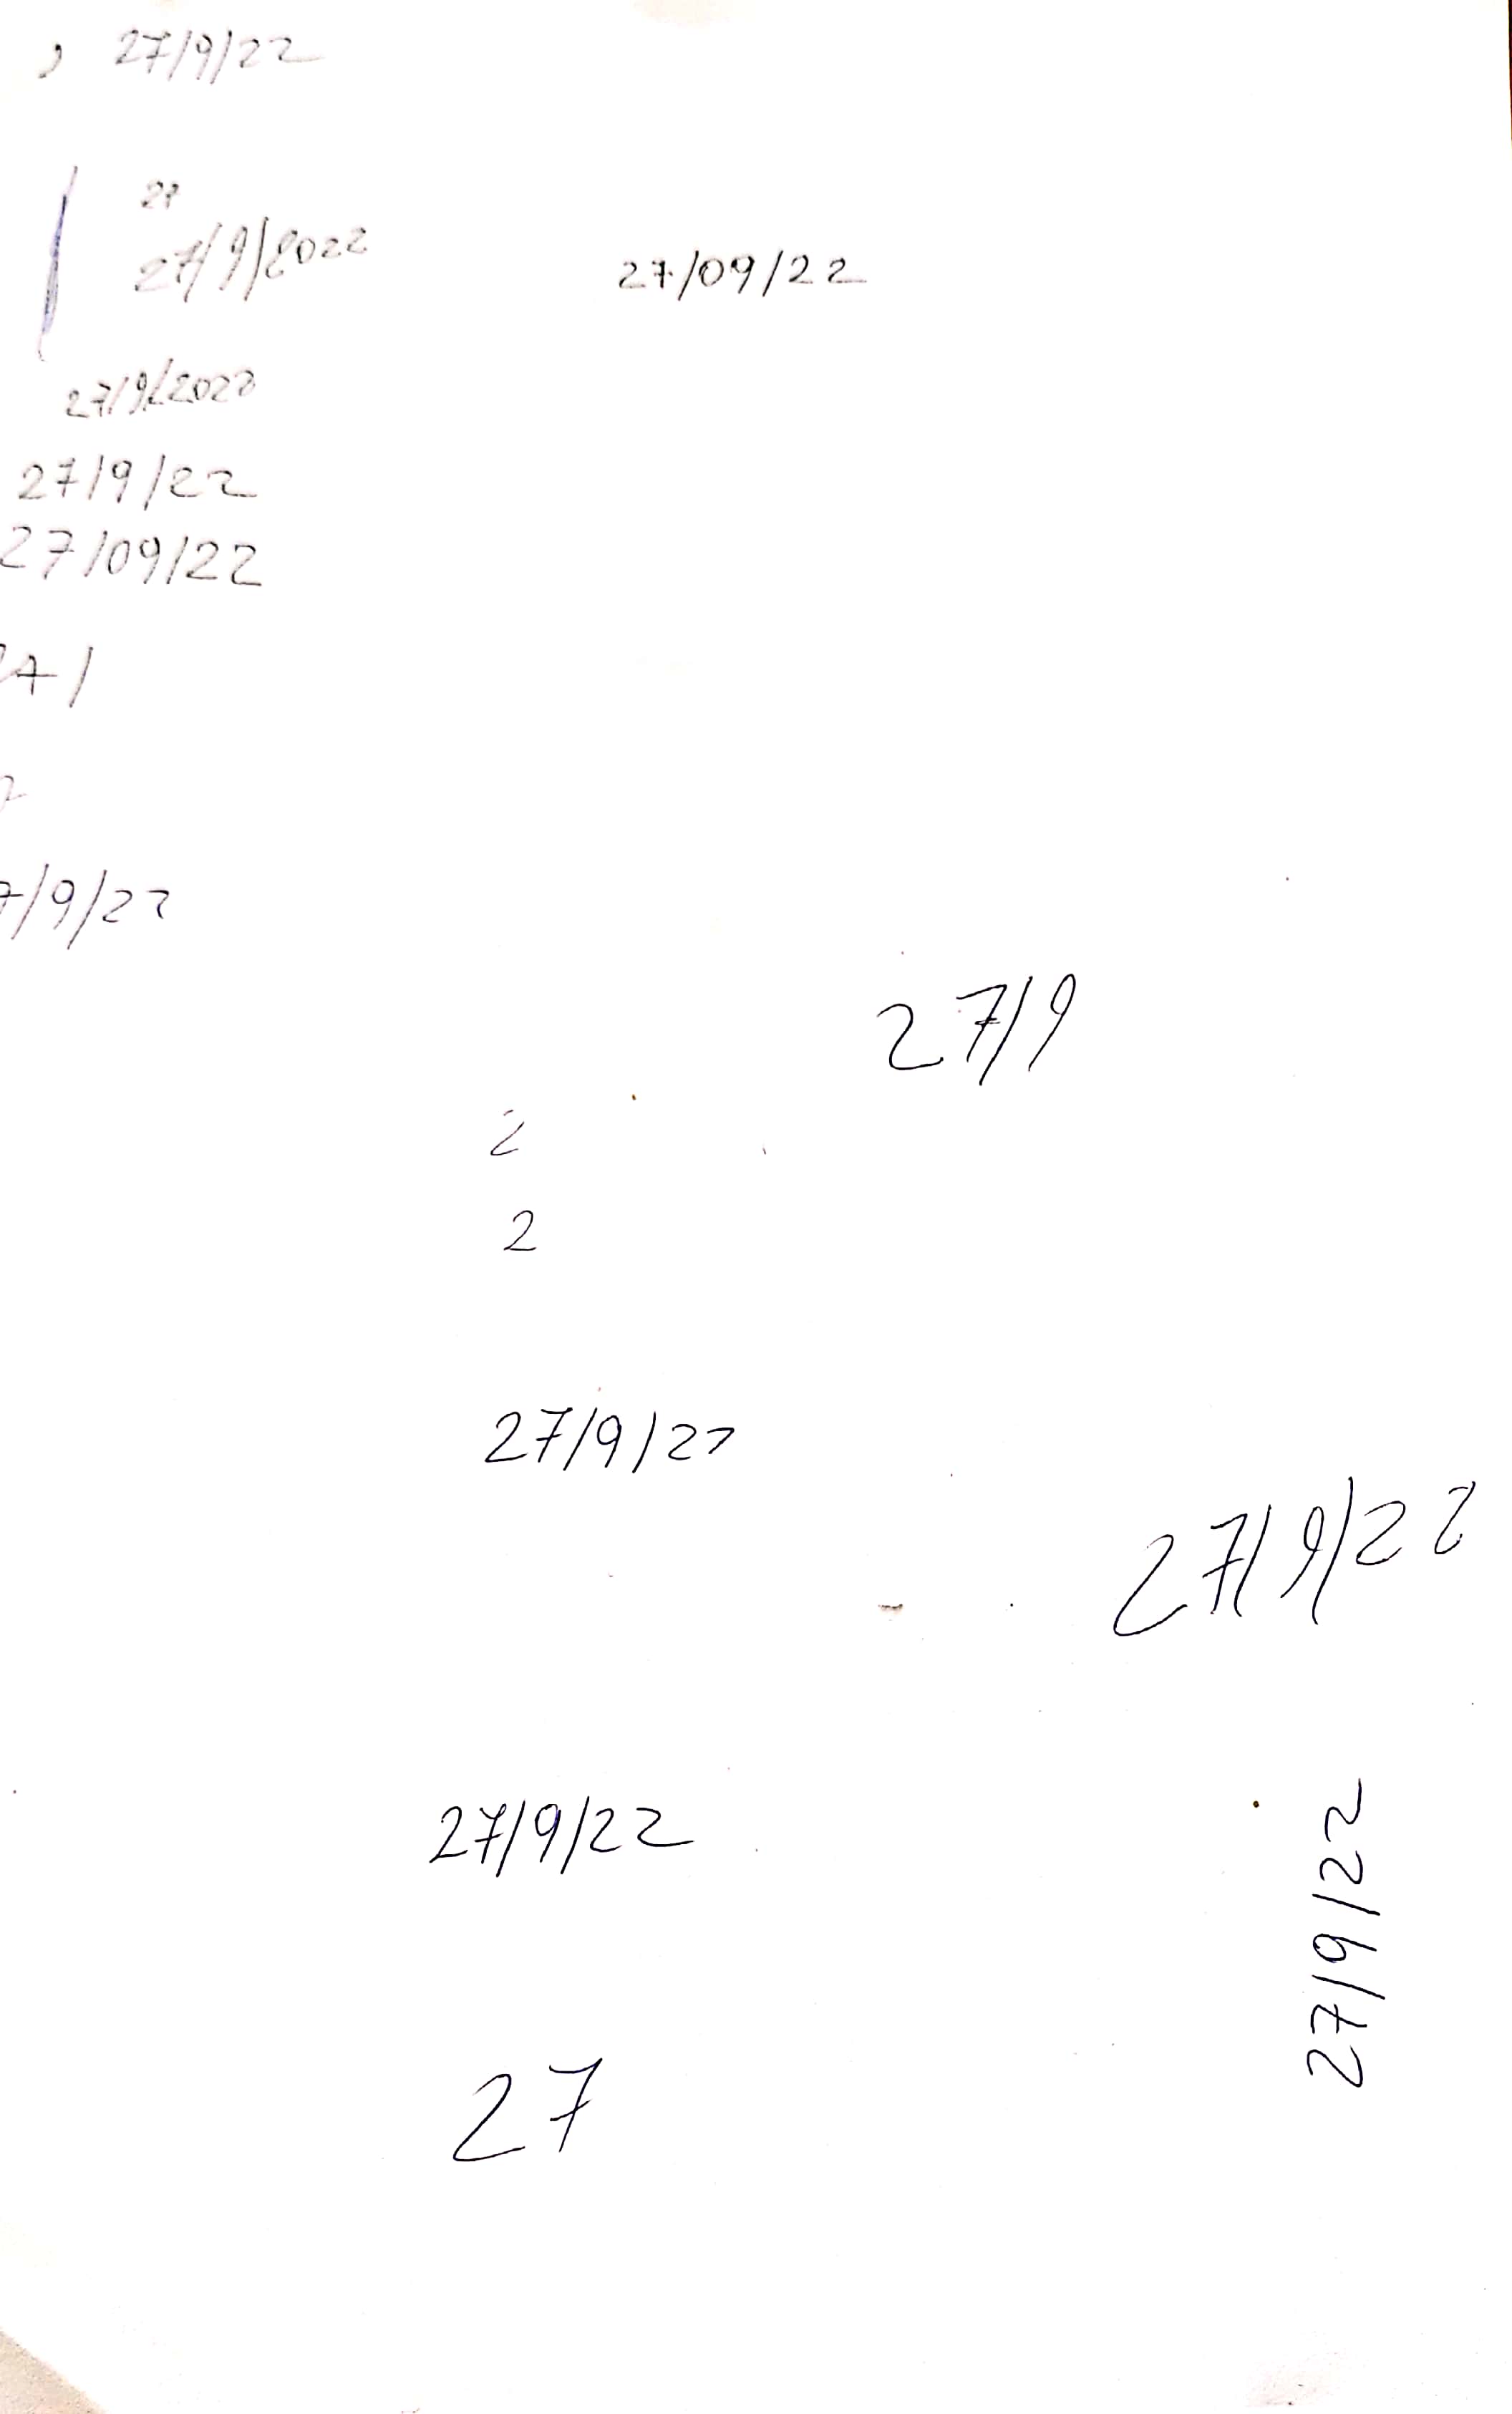 , 27/9/22
27
27/9/2022
27/09/22
27/9/2022
27/9/22
27/09/22
7/9/22
27/9
2
2
27/9/22
27/9/22
27/9/22
27/9/22
27